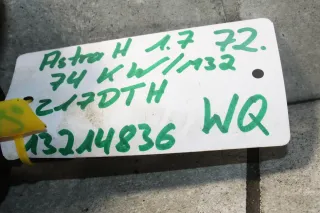 Astra H 1.7 72.
74 KW/132
Z17DTH
13214836 WQ